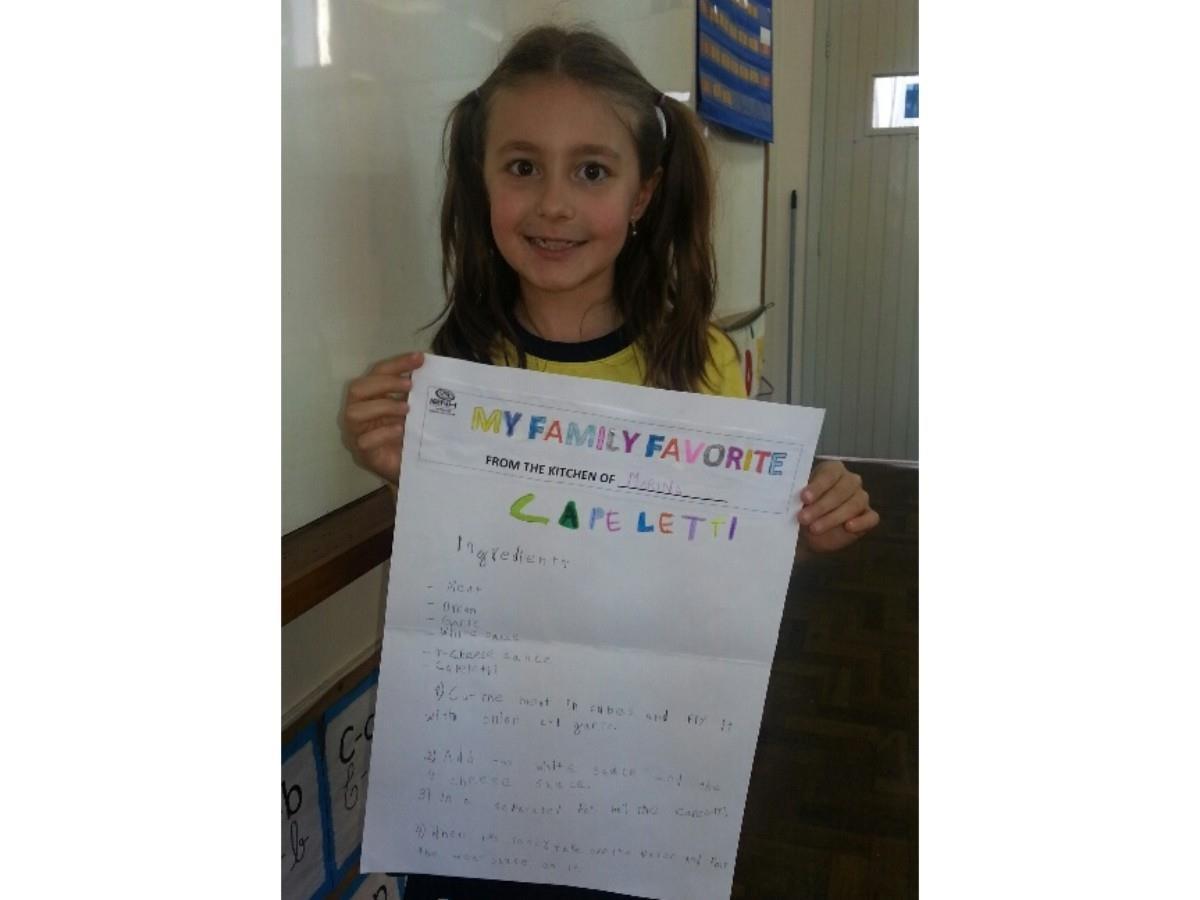 IENH
MY FAMILY FAVORITE
FROM THE KITCHEN OF MARINA
CAPELETTI
Ingredients
- Meat
- Onion
- Garlic
- White sauce
- 4-cheese sauce
- Capeletti
1) Cut the meat in cubes and fry it
with onion and garlic.
2) Add the white sauce and the
4 cheese sauce.
3) In a separated pot boil the capeletti
4) When it's ready take off the water and put
the meat sauce on it.
C-c
b
-b